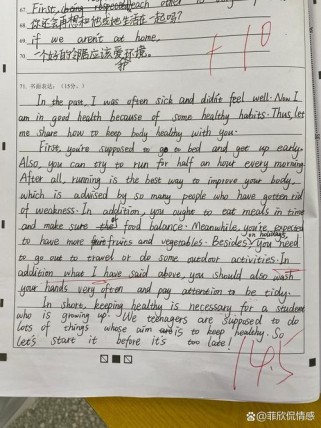 67. First, being respected each other is
68. 你还会再想和他或她生活在一起吗?
69. if we aren't at home,
70. 一个好的邻居应该爱环境。
+10
71. 书面表达。(15分。)
In the past, I was often sick and didn't feel well. Now I
am in good health because of some healthy habits. Thus, let
me share how to keep body healthy with you.
First, you're supposed to go to bed and get up early.
Also, you can try to run for half an hour every morning.
After all, running is the best way to improve your body,
which is advised by so many people who have gotten rid
of weakness. In addition, you ought to eat meals in time
and make sure food balance. Meanwhile, you're expected
to have more fruits and vegetables. Besides, you need
on holidays
to go out to travel or do some outdoor activities. In
addition what I have said above, you should also wash
your hands very often and pay attention to be tidy.
In short, keeping healthy is necessary for a student
who is growing up. We teenagers are supposed to do
lots of things whose aim is to keep healthy. So
let's start it before it's too late!
14.5
@菲欣侃情感